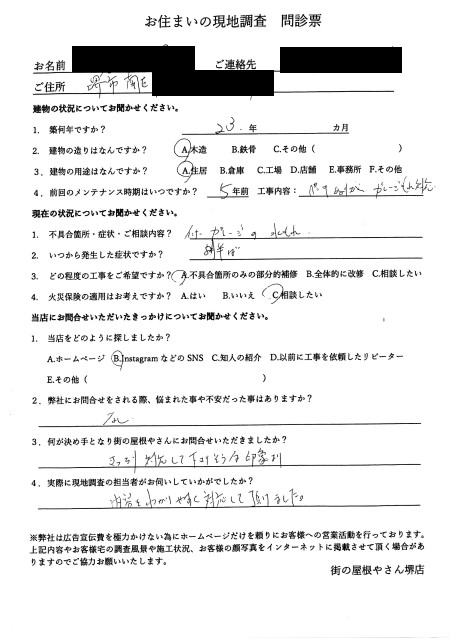 お住まいの現地調査　問診票
お名前　ご連絡先
ご住所　堺市 南区
建物の状況についてお聞かせください。
1. 築何年ですか？　23.年　カ月
2. 建物の造りはなんですか？　A.木造　B.鉄骨　C.その他（
3. 建物の用途はなんですか？　A.住居　B.倉庫　C.工場　D.店舗　E.事務所　F.その他
4. 前回のメンテナンス時期はいつですか？　5年前　工事内容：
現在の状況についてお聞かせください。
1. 不具合箇所・症状・ご相談内容？　ガレージの水もれ
2. いつから発生した症状ですか？　半ば
3. どの程度の工事をご希望ですか？　A.不具合箇所のみの部分的補修　B.全体的に改修　C.相談したい
4. 火災保険の適用はお考えですか？　A.はい　B.いいえ　C.相談したい
当店にお問合せいただいたきっかけについてお聞かせください。
1. 当店をどのように探しましたか？
A.ホームページ　B.InstagramなどのSNS　C.知人の紹介　D.以前に工事を依頼したリピーター
E.その他（　）
2. 弊社にお問合せをされる際、悩まれた事や不安だった事はありますか？
なし
3. 何が決め手となり街の屋根やさんにお問合せいただきましたか？
きっちり対応して下さりそうな印象より
4. 実際に現地調査の担当者がお伺いしていかがでしたか？
内容をわかりやすく対応して頂けました。
※弊社は広告宣伝費を極力かけない為にホームページだけを頼りにお客様への営業活動を行っております。
上記内容やお客様宅の調査風景や施工状況、お客様の顔写真をインターネットに掲載させて頂く場合があ
りますのでご協力お願いいたします。
街の屋根やさん堺店